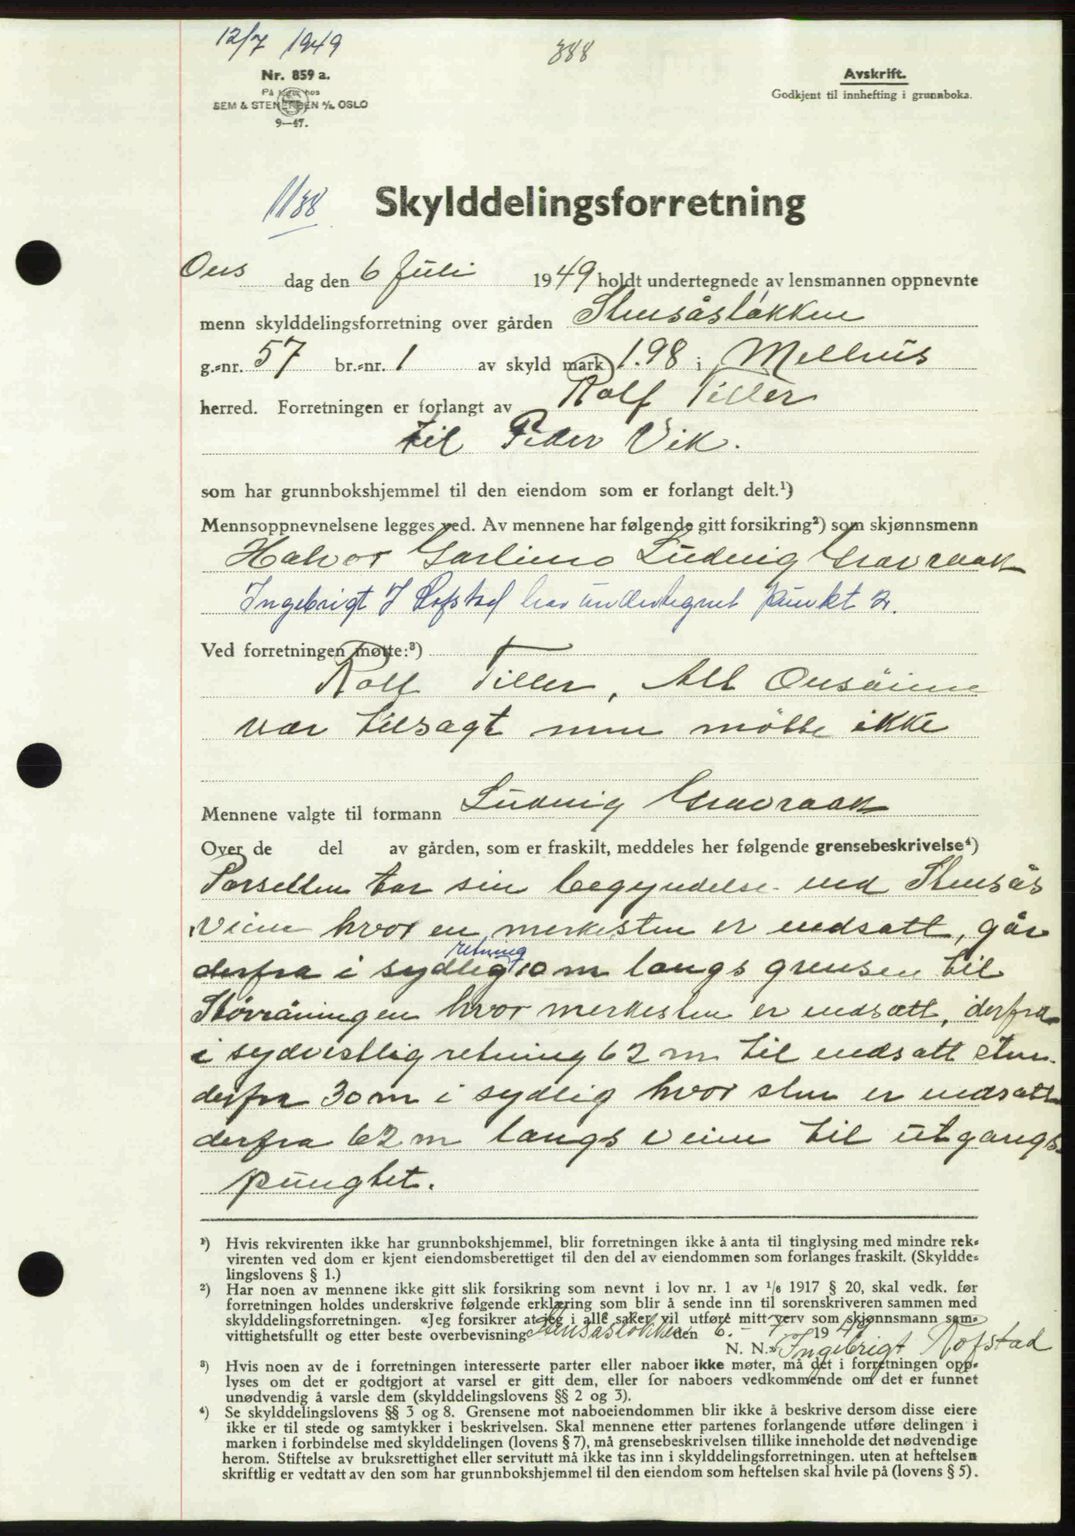 12/7 1949
388
Nr. 859 a.
På lager hos
SEM & STENERSEN A/S, OSLO
9—47.
Avskrift.
Godkjent til innhefting i grunnboka.
1188
Skylddelingsforretning
Ons dag den 6 Juli 1949 holdt undertegnede av lensmannen oppnevnte
menn skylddelingsforretning over gården Stensåsløkken
g.-nr. 57 br.-nr. 1 av skyld mark 1.98 i Melhus
herred. Forretningen er forlangt av Rolf Tiller
til Peder Vik.
som har grunnbokshjemmel til den eiendom som er forlangt delt.¹)
Mennsoppnevnelsene legges ved. Av mennene har følgende gitt forsikring²) som skjønnsmenn
Halvor Ludvig Gravraak
Ingebrigt J Hofstad har undertegnet punkt 2.
Ved forretningen møtte:³)
Rolf Tiller, Alb
var tilsagt men møtte ikke
Mennene valgte til formann Ludvig Gravraak
Over de del av gården, som er fraskilt, meddeles her følgende grensebeskrivelse⁴)
Parsellen tar sin begyndelse ved Stensås
veien hvor en merkesten er nedsatt, går
derfra i sydlig retning 10 m langs grensen til
hvor merkesten er nedsatt, derfra
i sydvestlig retning 62 m til nedsatt sten.
derfra 30 m i sydlig hvor sten er nedsatt
derfra 62 m langs veien til utgangs
punghtet.
¹) Hvis rekvirenten ikke har grunnbokshjemmel, blir forretningen ikke å anta til tinglysing med mindre rek-
virenten ved dom er kjent eiendomsberettiget til den del av eiendommen som forlanges fraskilt. (Skyldde-
lingslovens § 1.)
²) Har noen av mennene ikke gitt slik forsikring som nevnt i lov nr. 1 av 1/6 1917 § 20, skal vedk. før
forretningen holdes underskrive følgende erklæring som blir å sende inn til sorenskriveren sammen med
skylddelingsforretningen. «Jeg forsikrer at jeg i alle saker vil utføre mitt verv som skjønnsmann sam-
vittighetsfullt og etter beste overbevisning Stensåsløkken den 6. - 7 1949
N. N.» Ingebrigt Hofstad
³) Hvis noen av de i forretningen interesserte parter eller naboer ikke møter, må det i forretningen opp-
lyses om det er godtgjort at varsel er gitt dem, eller for naboers vedkommende om det er funnet
unødvendig å varsle dem (skylddelingslovens §§ 2 og 3).
⁴) Se skylddelingslovens §§ 3 og 8. Grensene mot naboeiendommen blir ikke å beskrive dersom disse eiere
ikke er til stede og samtykker i beskrivelsen. Skal mennene etter partenes forlangende utføre delingen i
marken i forbindelse med skylddelingen (lovens § 7), må grensebeskrivelsen tillike inneholde det nødvendige
herom. Stiftelse av bruksrettighet eller servitutt må ikke tas inn i skylddelingsforretningen. uten at heftelsen
skriftlig er vedtatt av den som har grunnbokshjemmel til den eiendom som heftelsen skal hvile på (lovens § 5).